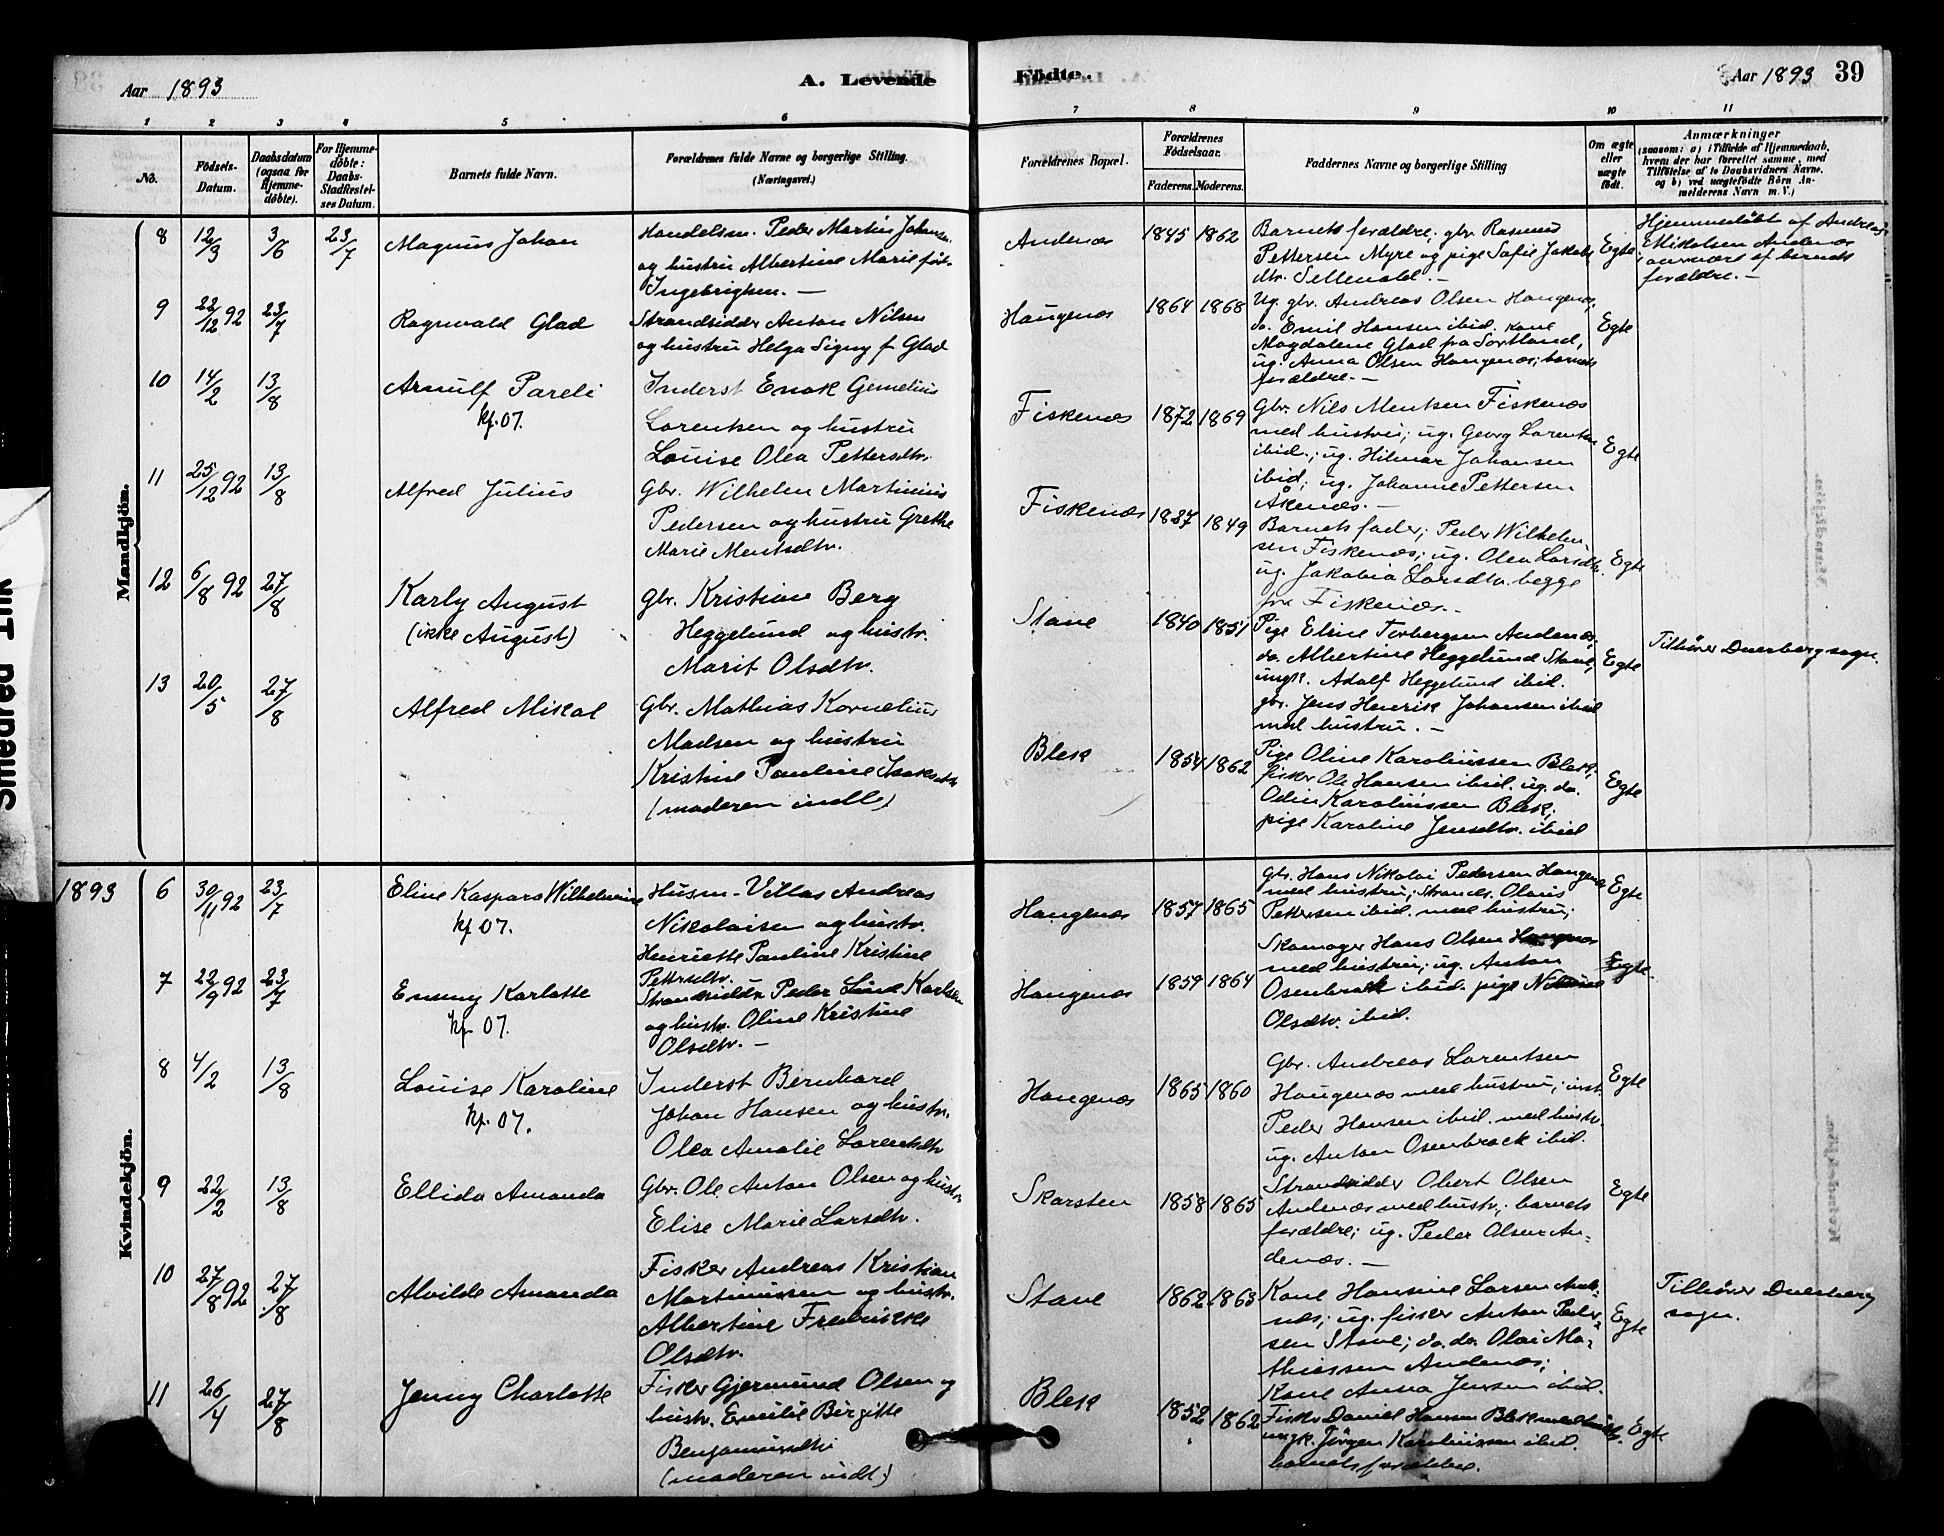 39
Aar 1893
A. Levende
1 2 3 4 5 6
No.
Födsels-
Datum.
Daabsdatum
(ogsaa for
Hjemme-
döbte).
For Hjemme-
döbte:
Daabs-
Stadfæstel-
ses Datum.
Barnets fulde Navn.
Forældrenes fulde Navne og borgerlige Stilling.
(Næringsvei.)
Mandkjön.
8 12/3 3/6 23/7 Magnus Johan
Handelsm. Peder Martin Johansen
og hustru Albertine Marie født
Ingebrigtsen. —
9 22/12 92 23/7 Ragnvald Glad
Strandsidder Anton Nilsen
og hustru Helga Signy f Glad
10 14/2 13/8 Arnulf Pareli
kf. 07.
Inderst Enok Cornelius
Lorentsen og hustru
Louise Olea Pettersdtr.
11 25/12 92 13/8 Alfred Julius
Gbr. Wilhelm Martinius
Pedersen og hustru Grethe
Marie Mentsdtr.
12 6/8 92 27/8 Karly August
(ikke August)
Gbr. Kristian Berg
Heggelund og hustr.
Marit Olsdtr.
13 20/5 27/8 Alfred Mikal
Gbr. Mathias Kornelius
Madsen og hustru
Kristine Pauline Isaksdtr
(moderen indl.)
1893
Kvindekjön.
6 30/11 92 23/7 Eline Kaspara Wilhelmine
kf 07.
Husm. Villas Andreas
Nikolaisen og hustr.
Henriette Pauline Kristine
Pettersdtr.
7 22/9 92 23/7 Emmy Karlotte
kf. 07.
Strandsidder Peder Lind Karlsen
og hustr. Oline Kristine
Olsdtr. —
8 4/2 13/8 Louise Karoline
kf. 07.
Inderst Bernhard
Johan Hansen og hustr.
Olea Amalie Lorentsdtr
9 22/2 13/8 Ellida Amanda
Gbr. Ole Anton Olsen og hustr
Elise Marie Larsdtr.
10 27/8 92 27/8 Alvilde Amanda
Fisker Andreas Kristian
Martinussen og hustr.
Albertine Fredrikke
Olsdtr.
11 26/4 27/8 Jenny Charlotte
Fisker Gjermund Olsen og
hustr. Emilie Birgitte
Benjaminsdtr
(moderen indt.)
Födte.
Aar 1893 39
7 8 9 10 11
Forældrenes Bopæl.
Forældrenes
Födselsaar.
Faderens. Moderens.
Faddernes Navne og borgerlige Stilling
Om ægte
eller
uægte
födt.
Anmærkninger
(saasom: a) i Tilfælde af Hjemmedaab,
hvem der har forrettet samme, med
Tilföielse af to Daabsvidners Navne,
og b) ved uægtefödte Börn An-
melderens Navn m. V.)
Andenæs 1845 1862
Barnets forældre; gbr. Rasmus
Pettersen Myre og pige Sofie Jakobs
dtr. Sellevold. —
Egte
Hjemmedøbt af Andreas
Mikalsen Andenæs
i nærvær af barnets
forældre. —
Haugenæs 1864 1868
Ug. gbr. Andreas Olsen Haugenæs;
do. Emil Hansen ibid. kone
Magdalene Glad fra Sortland,
ug. Anna Olsen Haugenæs; barnets
forældre. —
Egte
Fiskenæs 1872 1869
Gbr. Nils Mentsen Fiskenæs
med hustru; ug. Georg Lorentsen
ibid.; ug. Hilmar Johansen
ibid; ug. Johanne Pettersen
Åkenæs. —
Egte
Fiskenæs 1837 1849
Barnets fader; Peder Wilhelm-
sen Fiskenæs; ug. Olea Larsdtr.
ug. Jakobia Larsdtr. begge
fra Fiskenæs. —
Egte
Stave 1840 1851
Pige Elrine Torbergsen Andenæs;
do. Albertine Heggelund Stave;
ungk. Adolf Heggelund ibid.
gbr. Jens Henrik Johansen ibid
med hustru. —
Egte
Tilhører Dverberg sogn.
Blek 1854 1862
Pige Oline Karoliussen Blek;
fisker Ole Hansen ibid. ug. do.
Odin Karoliussen Blek;
pige Karoline Jensdtr. ibid
Egte
Haugenæs 1857 1865
Gbr. Hans Nikolai Pedersen Haugenæs
med hustru; Strands. Olaus
Pettersen ibid. med hustru;
Egte
Haugenæs 1859 1864
Skomager Hans Olsen Haugenæs
med hustru; ug. Anton
Osenbrock ibid. pige
Olsdtr. ibid.
Egte
Haugenæs 1865 1860
Gbr. Andreas Lorentsen
Haugenæs med hustru; inst.
Peder Hansen ibid. med hustr.
ug. Anton Osenbrock ibid.
Egte
Skarsten 1858 1865
Strandsidder Obert Olsen
Andenæs med hustr.; barnets
forældre; ug. Peder Olsen An-
denæs. —
Egte
Stave 1862 1863
Kone Hansine Larsen And-
næs; ug. fisker Anton Peder-
sen Stave; do. do. Olai Ma-
thiassen Andenæs;
Kone Anna Jensen ibid.
Egte
Tilhører Dverberg
sogn.
Blek 1852 1862
Fisker Daniel Hansen Blek med hustr.
ungk. Jörgen Karoliussen ibid.
barnets forældre.
Egte